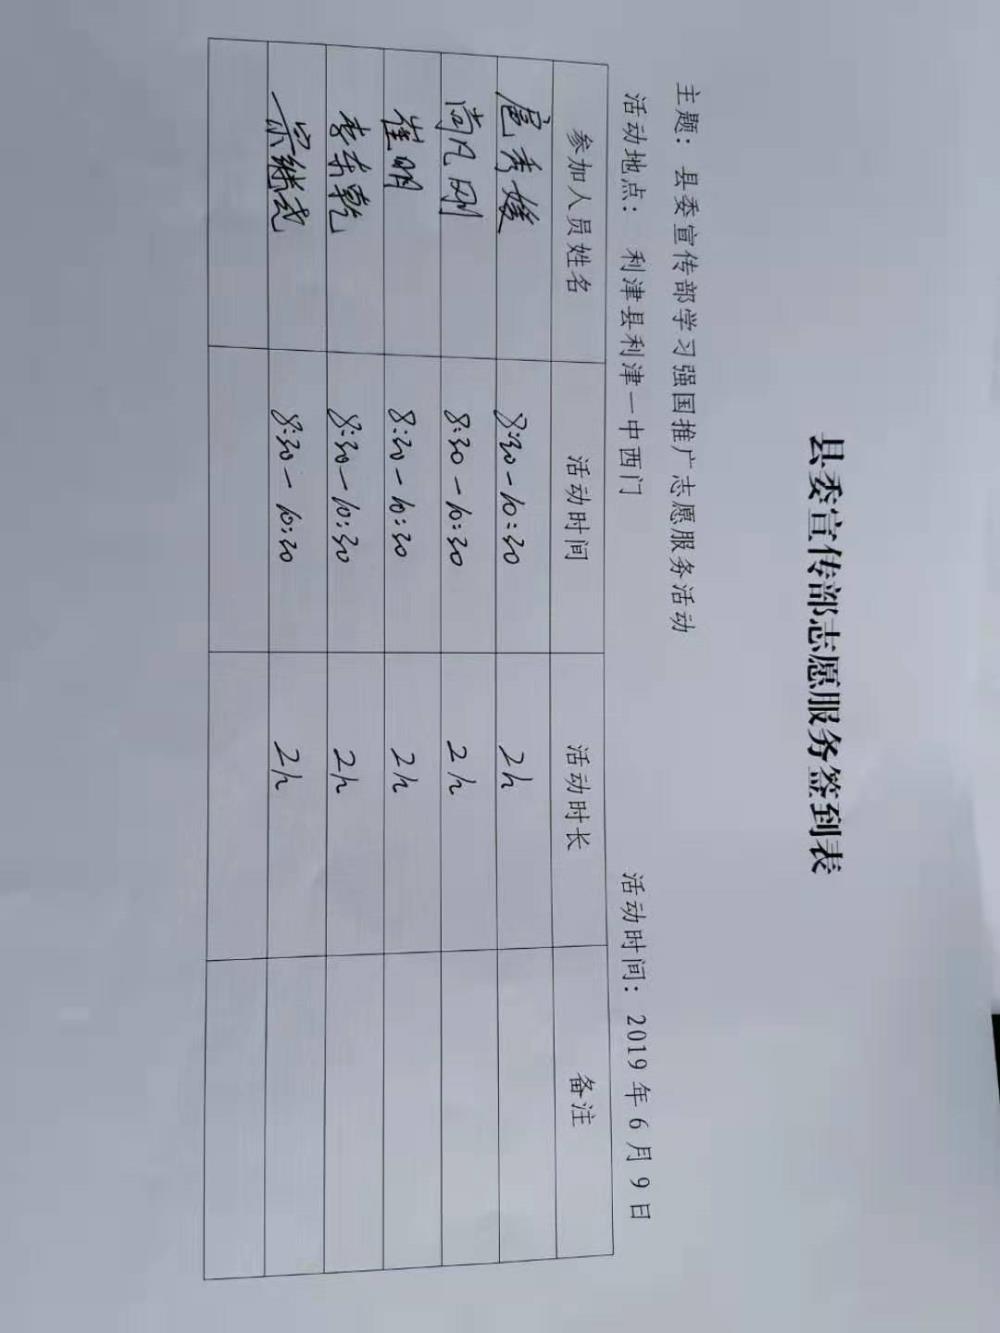 县委宣传部志愿服务签到表
主题：县委宣传部学习强国推广志愿服务活动
活动地点：利津县利津一中西门 活动时间：2019年6月9日
参加人员姓名 活动时间 活动时长 备注
扈秀媛 8:30-10:30 2h
尚凡刚 8:30-10:30 2h
崔明 8:30-10:30 2h
李东乾 8:30-10:30 2h
8:30-10:30 2h